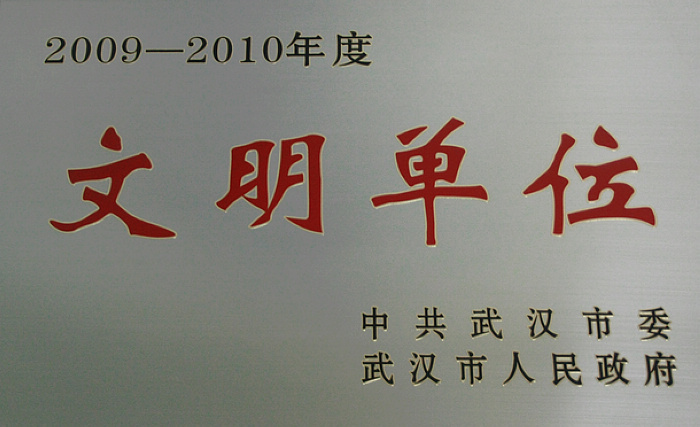 2009—2010年度
文明单位
中共武汉市委
武汉市人民政府